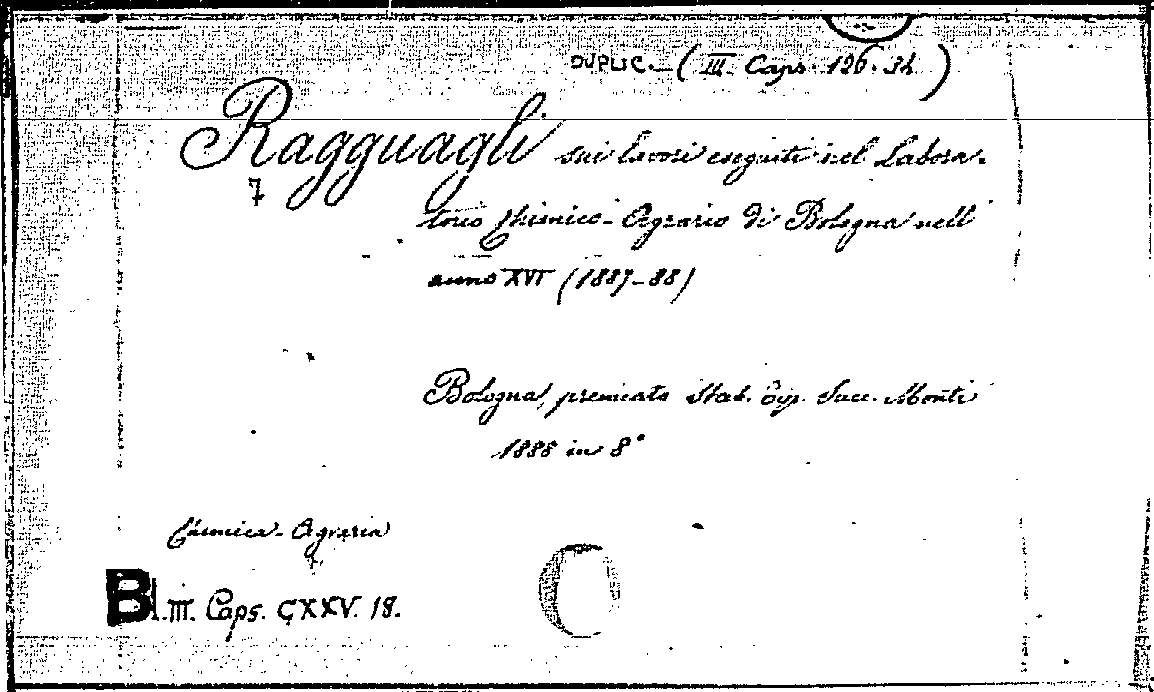 DUPLIC. - (III. Caps. 126. 34)
Ragguagli sui lavori eseguiti nel Labora-
7
torio Chimico-Agrario di Bologna nell'
anno XVI (1887-88)
Bologna, premiato Stab. Tip. Succ. Monti
1888 in 8°
Chimica-Agraria
B. III. Caps. CXXV. 18.